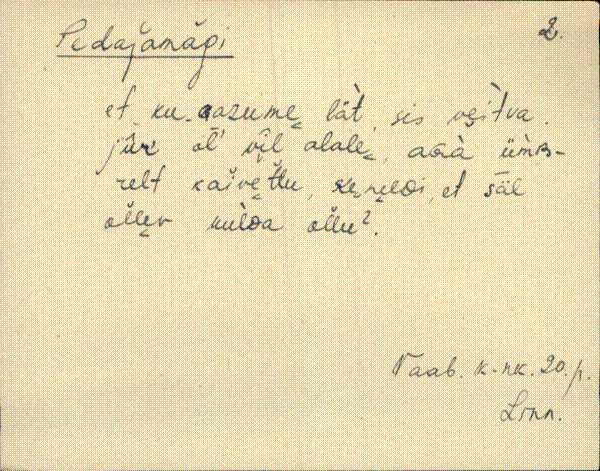 Pedajamägi
2.
et ku aazume lät, sis veitva.
jür ol' vil alale, aGà ümb-
relt kaivettu, keneldi, et säl
ollev kulda ollu².
Vaab. k-nk. 20. p.
Linn.